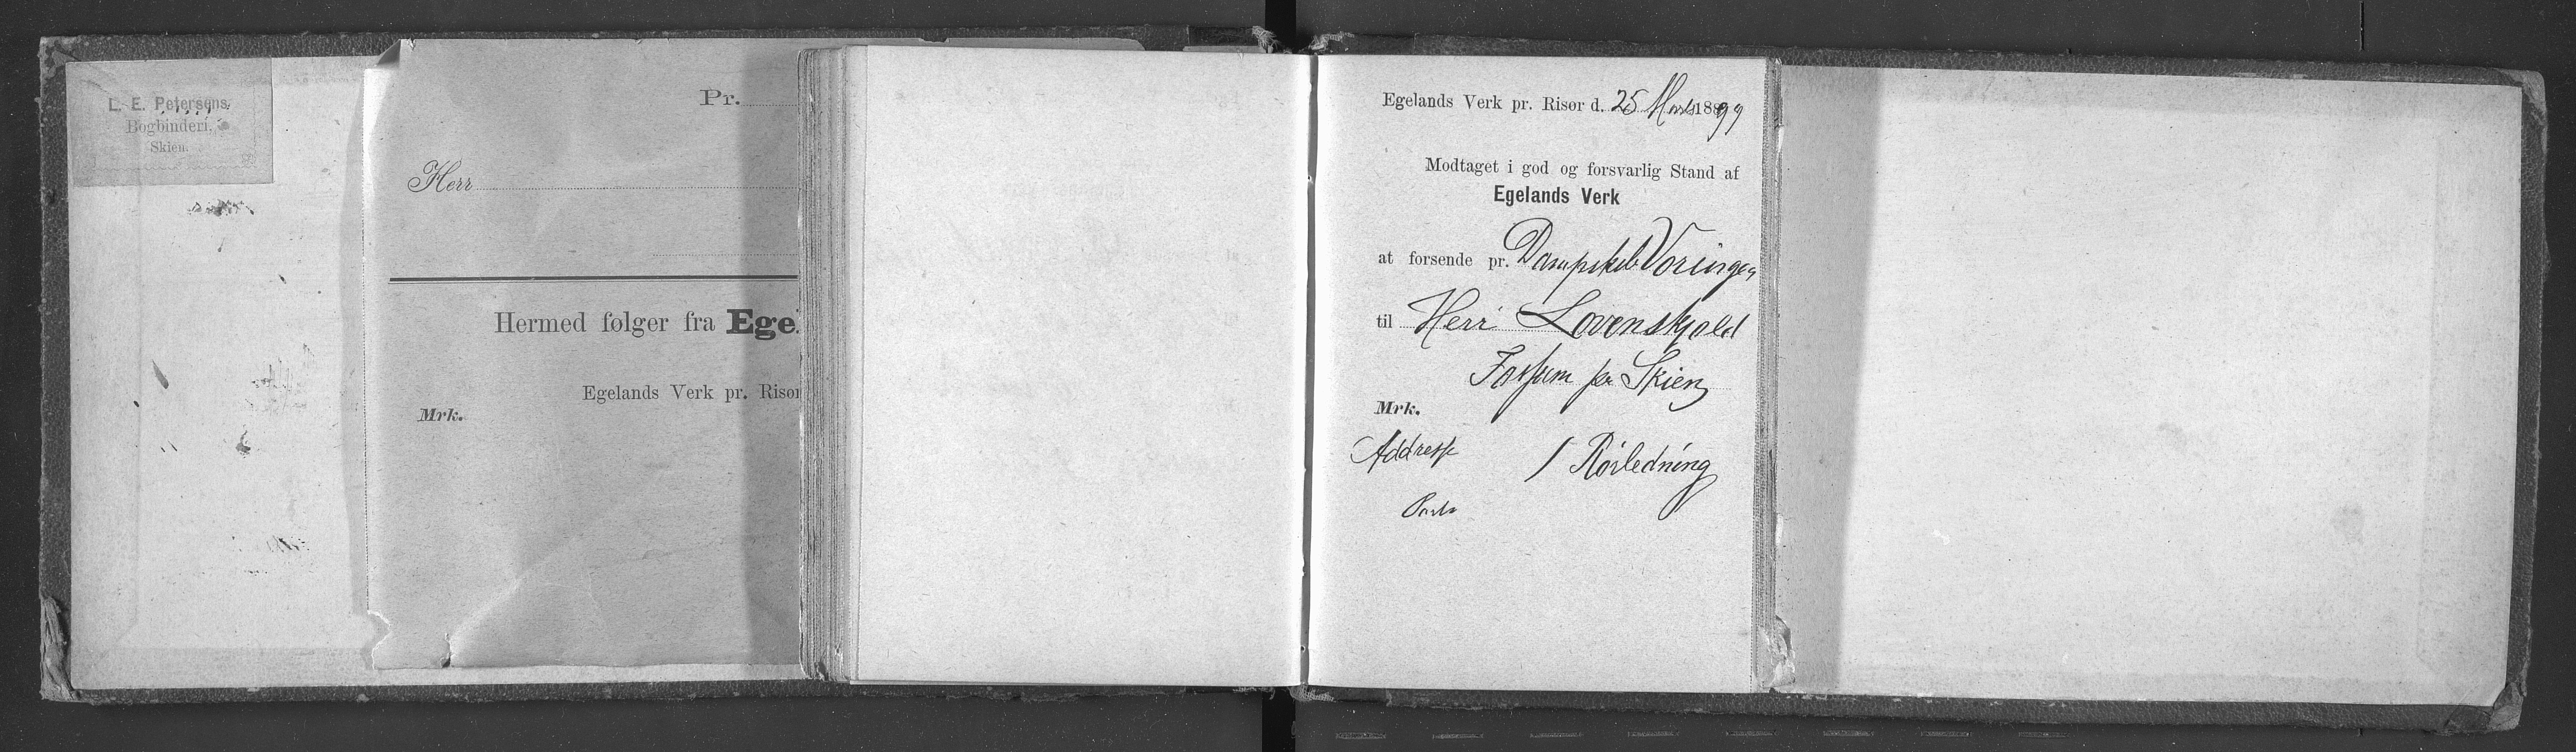 L. E. Petersens
Bogbinderi.
Skien.
Pr.
Herr
Hermed følger fra Ege
Egelands Verk pr. Risør
Mrk.
Egelands Verk pr. Risør d. 25 Marts 1899
Modtaget i god og forsvarlig Stand af
Egelands Verk
at forsende pr. Dampskib Voringen
til Herr Lovenskjold
Fossum pr Skien
Mrk.
Addresse 1 Rörledning